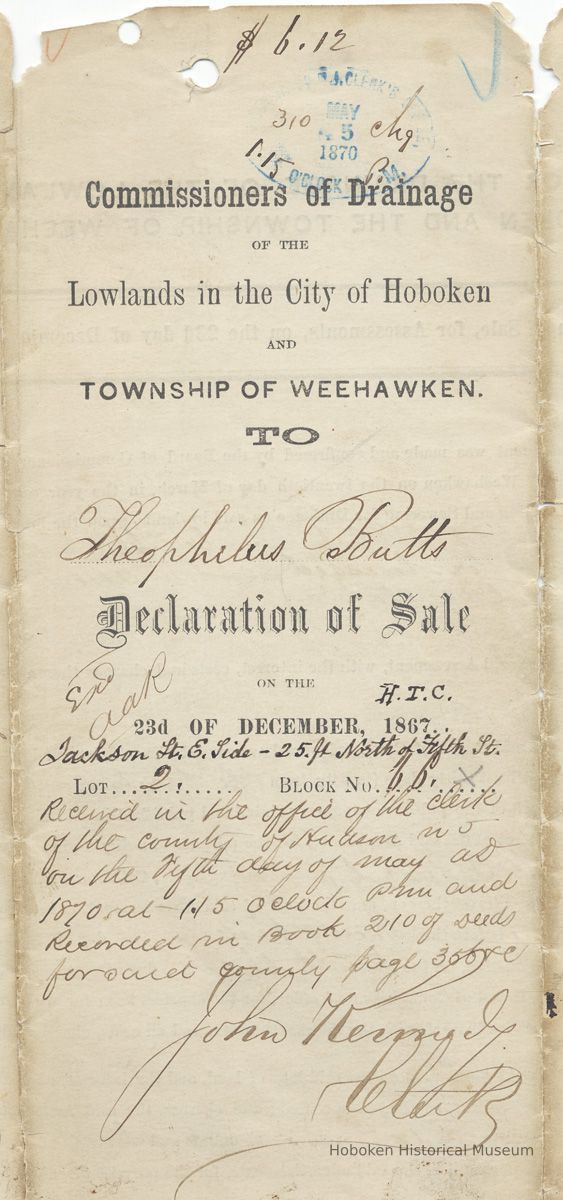 $6.12
CLERK'S
310 MAY chg
5
1870
1.15 O'CLOCK P.M.
Commissioners of Drainage
OF THE
Lowlands in the City of Hoboken
AND
TOWNSHIP OF WEEHAWKEN.
TO
Theophilus Butts
Declaration of Sale
ON THE
H.T.C.
23d OF DECEMBER, 1867.
Jackson St. E. Side - 25 ft North of Fifth St.
LOT 2. BLOCK No. X
Received in the office of the clerk
of the county of Hudson
on the Fifth day of may AD
1870 at 1.15 oclock P m and
Recorded in Book 210 of deeds
for said county page &c
John Kennedy
Clerk
Hoboken Historical Museum